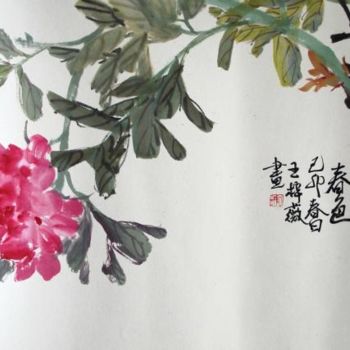 春色
己卯春日
王梓薇
畫